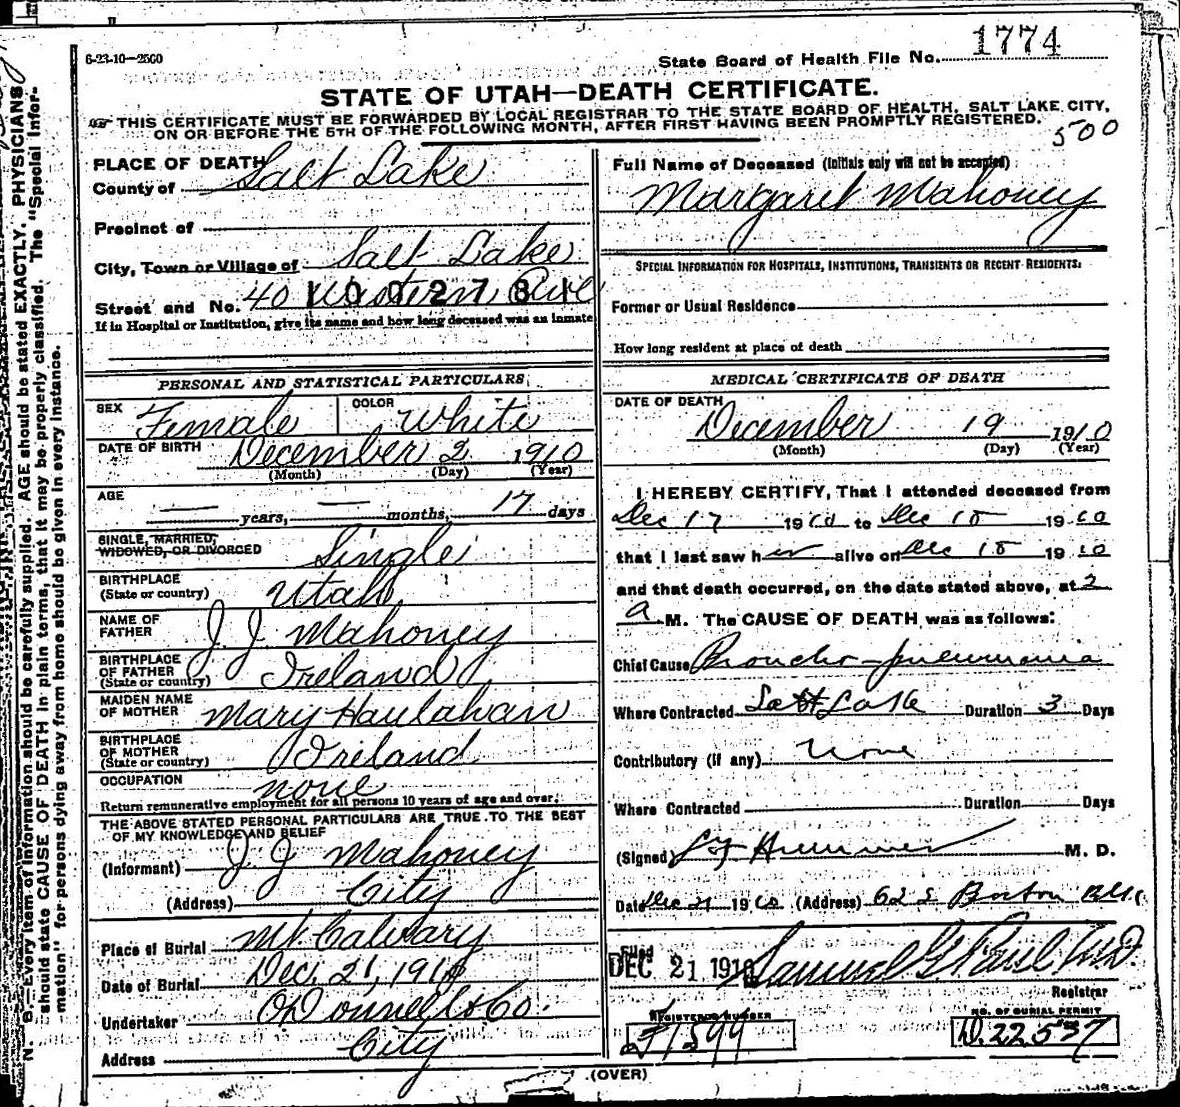 6-23-10—2500
State Board of Health File No. 1774
STATE OF UTAH—DEATH CERTIFICATE.
THIS CERTIFICATE MUST BE FORWARDED BY LOCAL REGISTRAR TO THE STATE BOARD OF HEALTH, SALT LAKE CITY,
ON OR BEFORE THE 5TH OF THE FOLLOWING MONTH, AFTER FIRST HAVING BEEN PROMPTLY REGISTERED.
500
PLACE OF DEATH
County of Salt Lake
Precinct of
City, Town or Village of Salt Lake
Street and No. 40 Western Ave
1002781
If in Hospital or Institution, give its name and how long deceased was an inmate
PERSONAL AND STATISTICAL PARTICULARS
SEX Female COLOR White
DATE OF BIRTH December 2 1910
(Month) (Day) (Year)
AGE
— years, — months, 17 days
SINGLE, MARRIED,
WIDOWED, OR DIVORCED Single
BIRTHPLACE
(State or country) Utah
NAME OF
FATHER J. J. Mahoney
BIRTHPLACE
OF FATHER
(State or country) Ireland
MAIDEN NAME
OF MOTHER Mary Haulahan
BIRTHPLACE
OF MOTHER
(State or country) Ireland
OCCUPATION none
Return remunerative employment for all persons 10 years of age and over.
THE ABOVE STATED PERSONAL PARTICULARS ARE TRUE TO THE BEST
OF MY KNOWLEDGE AND BELIEF
(Informant) J J Mahoney
(Address) City
Place of Burial Mt Calvary
Date of Burial Dec. 21, 1910
Undertaker O'Donnell & Co.
Address City
Full Name of Deceased (Initials only will not be accepted)
Margaret Mahoney
SPECIAL INFORMATION FOR HOSPITALS, INSTITUTIONS, TRANSIENTS OR RECENT RESIDENTS.
Former or Usual Residence
How long resident at place of death
MEDICAL CERTIFICATE OF DEATH
DATE OF DEATH
December 19 1910
(Month) (Day) (Year)
I HEREBY CERTIFY, That I attended deceased from
Dec 17 1910 to Dec 18 1910
that I last saw her alive on Dec 18 1910
and that death occurred, on the date stated above, at 2
a M. The CAUSE OF DEATH was as follows:
Chief Cause Broncho-pneumonia
Where Contracted Salt Lake Duration 3 Days
Contributory (if any) None
Where Contracted Duration Days
(Signed) Hummer M. D.
Date Dec 21 1910 (Address) 622 Boston Bldg
Filed
DEC 21 1910 Samuel G Paul MD.
Registrar
REGISTERED NUMBER
1899
NO. OF BURIAL PERMIT
D. 22537
(OVER)
N. B.—Every item of information should be carefully supplied. AGE should be stated EXACTLY. PHYSICIANS
should state CAUSE OF DEATH in plain terms, that it may be properly classified. The "Special Infor-
mation" for persons dying away from home should be given in every instance.